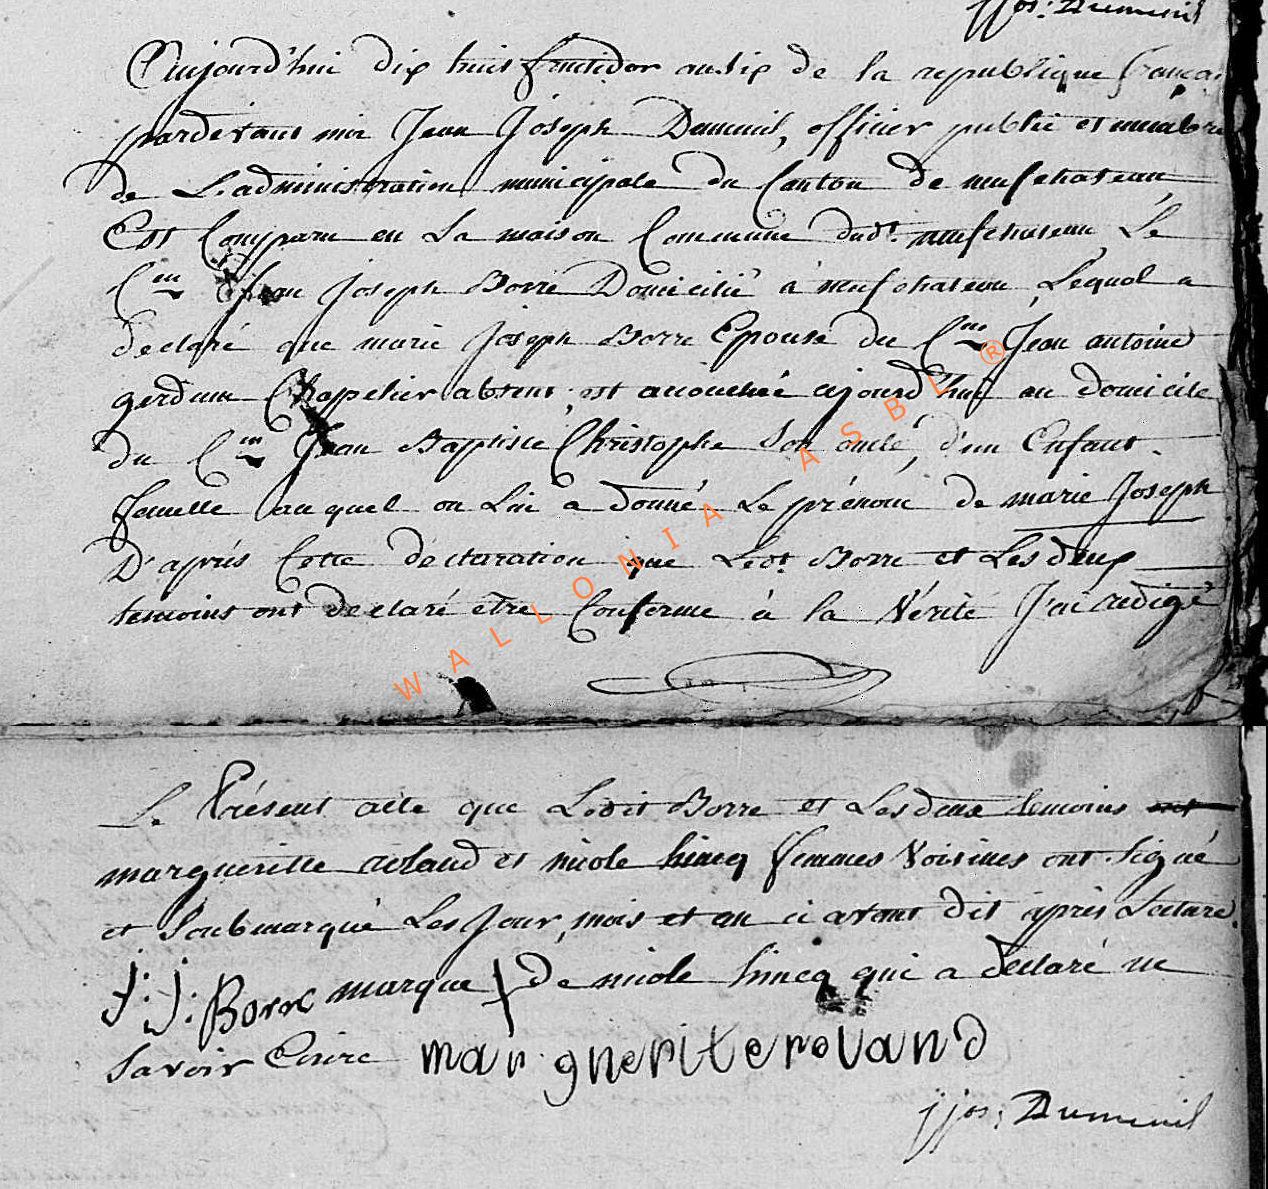 jjos: Dumenil
Aujourd'hui dix huit fructidor an six de la republique françai
pardevant moi Jean Joseph Dumenil, officier public et membre
de L'administration municipale du Canton de neufchateau
Est Comparu en La maison Commune dudt. neufchateau, Le
Cen Jean Joseph Borre Domicilié à neufchateau, Lequel a
declaré que marie Joseph Borre Epouse du Cen Jean antoine
Chapelier absent, est accouchée ajourd'hui au domicile
du Cen Jean Baptiste Christophe son oncle, d'un Enfant
femelle auquel on Lui a donné Le prénom de marie Joseph
D'après Cette déclaration que Ledt. Borre et Les deux
temoins ont declaré etre Conforme à la Vérité J'ai redigé
Le Présent acte que Ledit Borre et Les deux temoins ont
margueritte et nicole hincq femmes Voisines ont signé
et Soubmarqué Les Jour, mois et an ci avant dit après Lecture.
j: j: Borre marque de nicole hincq qui a déclaré ne
savoir Ecrire marguerite rovand
jjos: Dumenil
WALLONIA ASBL ®